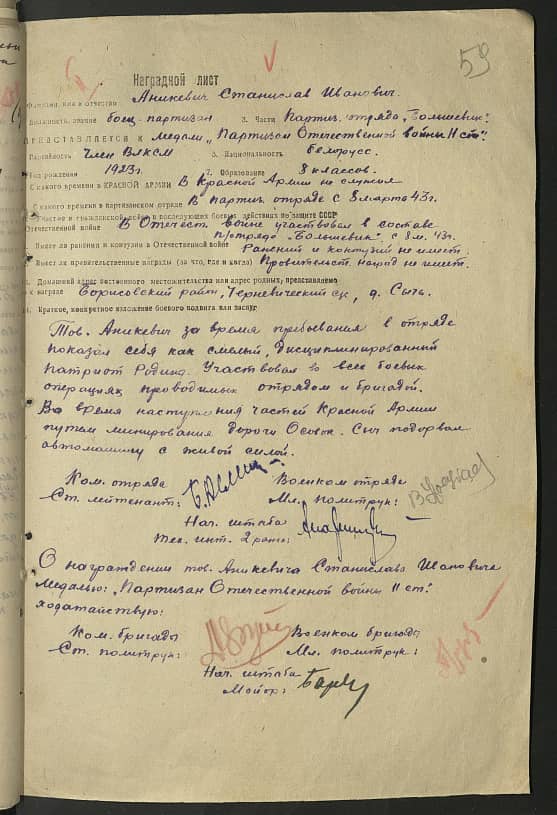 59
Наградной лист
Фамилия, имя и отчество Аникевич Станислав Иванович.
Должность, звание боец-партизан 3. Части Партиз. отряда „Большевик".
ПРЕДСТАВЛЯЕТСЯ К Медали „Партизан Отечественной войны II ст".
Партийность Член ВЛКСМ 5. Национальность белорусс.
Год рождения 1923г. 7. Образование 8 классов.
С какого времени в КРАСНОЙ АРМИИ В Красной Армии не служил
С какого времени в партизанском отряде В партиз. отряде с 8 марта 43г.
Участие в гражданской войне и последующих боевых действиях по защите СССР
Отечественной войне В Отечест. войне участвовал в составе
п/отряда „Большевик" с 8 м. 43г.
Имеет ли ранения и контузии в Отечественной войне Ранений и контузий не имеет.
Имел ли правительственные награды (за что, где и когда) Правительст. наград не имеет.
Домашний адрес постоянного местожительства или адрес родных, представляемого
к награде Борисовский район, Черневический с/с, д. Сыч.
Краткое, конкретное изложение боевого подвига или заслуг
Тов. Аникевич за время пребывания в отряде
показал себя как смелый, дисциплинированный
патриот Родины. Участвовал во всех боевых
операциях проводимых отрядом и бригадой.
Во время наступления частей Красной Армии
путем минирования дороги Осовок. Сыч подорвал
автомашину с живой силой.
Ком. отряда Военком отряда
Ст. лейтенант: Мл. политрук:
Нач. штаба
Тех. инт. 2 ранга:
О награждении тов. Аникевича Станислава Ивановича
Медалью: „Партизан Отечественной войны II ст".
ходатайствую:
Ком. бригады Военком бригады
Ст. политрук: Мл. политрук:
Нач. штаба
Майор: